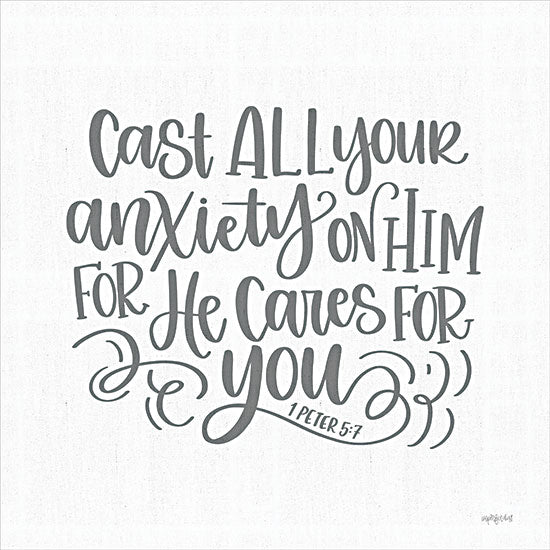 Cast ALL your
anxiety ON HIM
FOR He Cares FOR
you
1 PETER 5:7